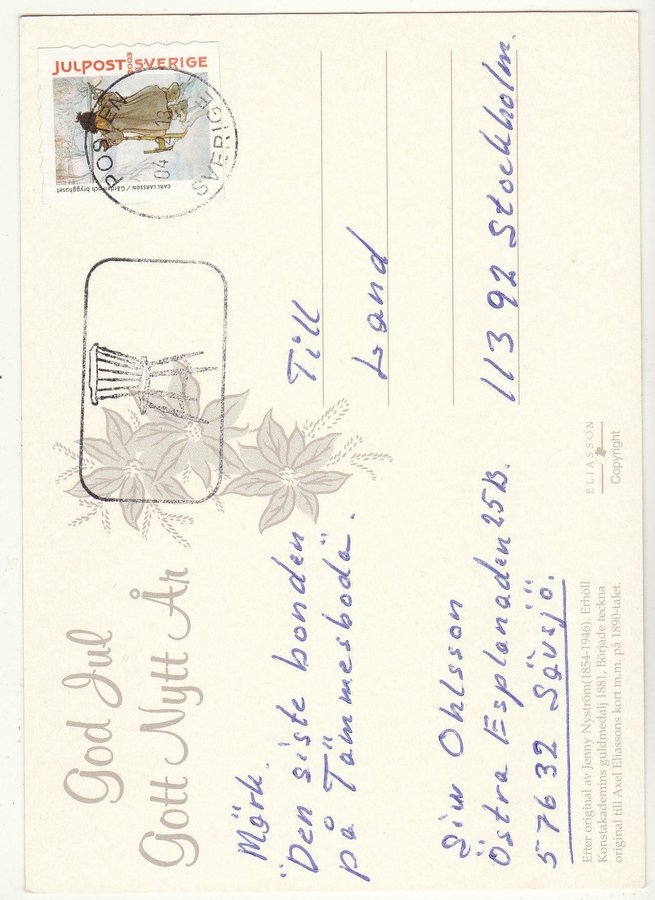 JULPOST SVERIGE
2003
CARL LARSSON / Gården och brygghuset
POSTEN
04 13
SVERIGE
God Jul
Gott Nytt År
Märk.
"Den siste bonden
på Tämmesboda".
Siw Ohlsson
Östra Esplanaden 25B.
57632 Sävsjö.
Till
Land
113 92 Stockholm.
ELIASSON
Copyright
Efter original av Jenny Nyström(1854-1946). Erhöll
Konstakademins guldmedalj 1881, Började teckna
original till Axel Eliassons kort m.m. på 1890-talet.